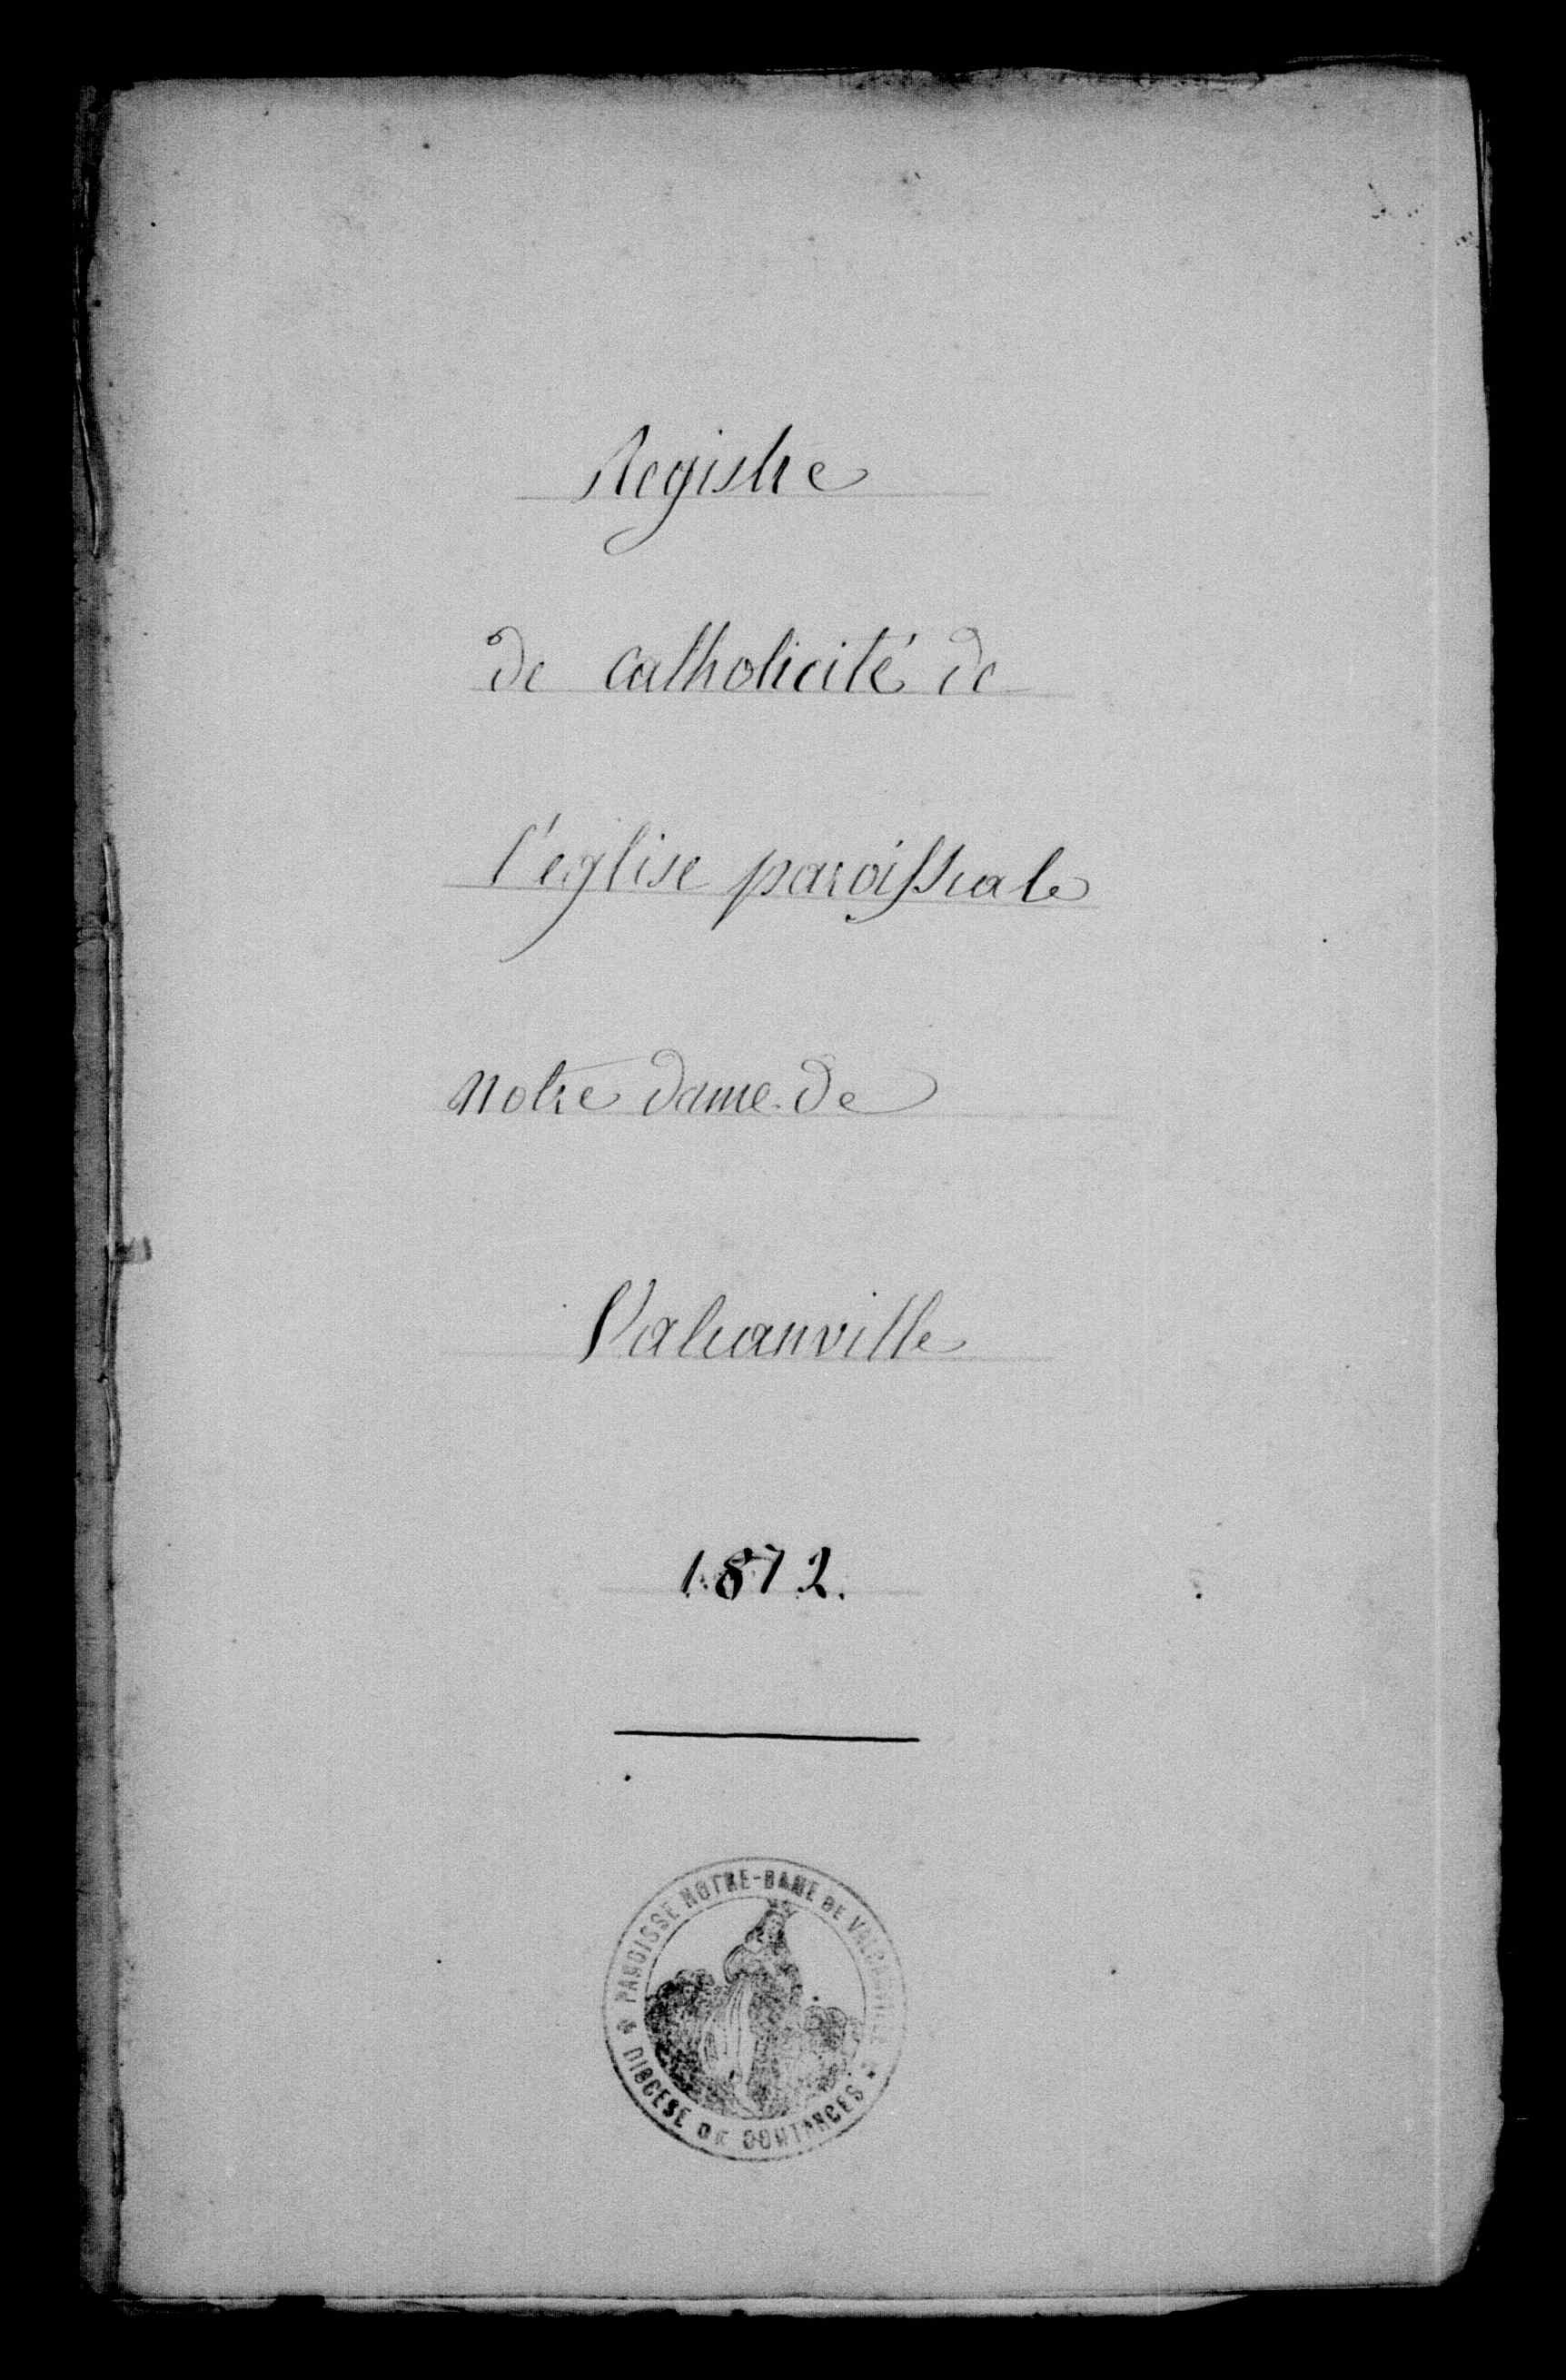 Registre
de catholicité de
l'église paroissiale
Notre dame de
Valcanville
1872.
PAROISSE NOTRE-DAME DE VALCANVILLE
DIOCESE DE COUTANCES